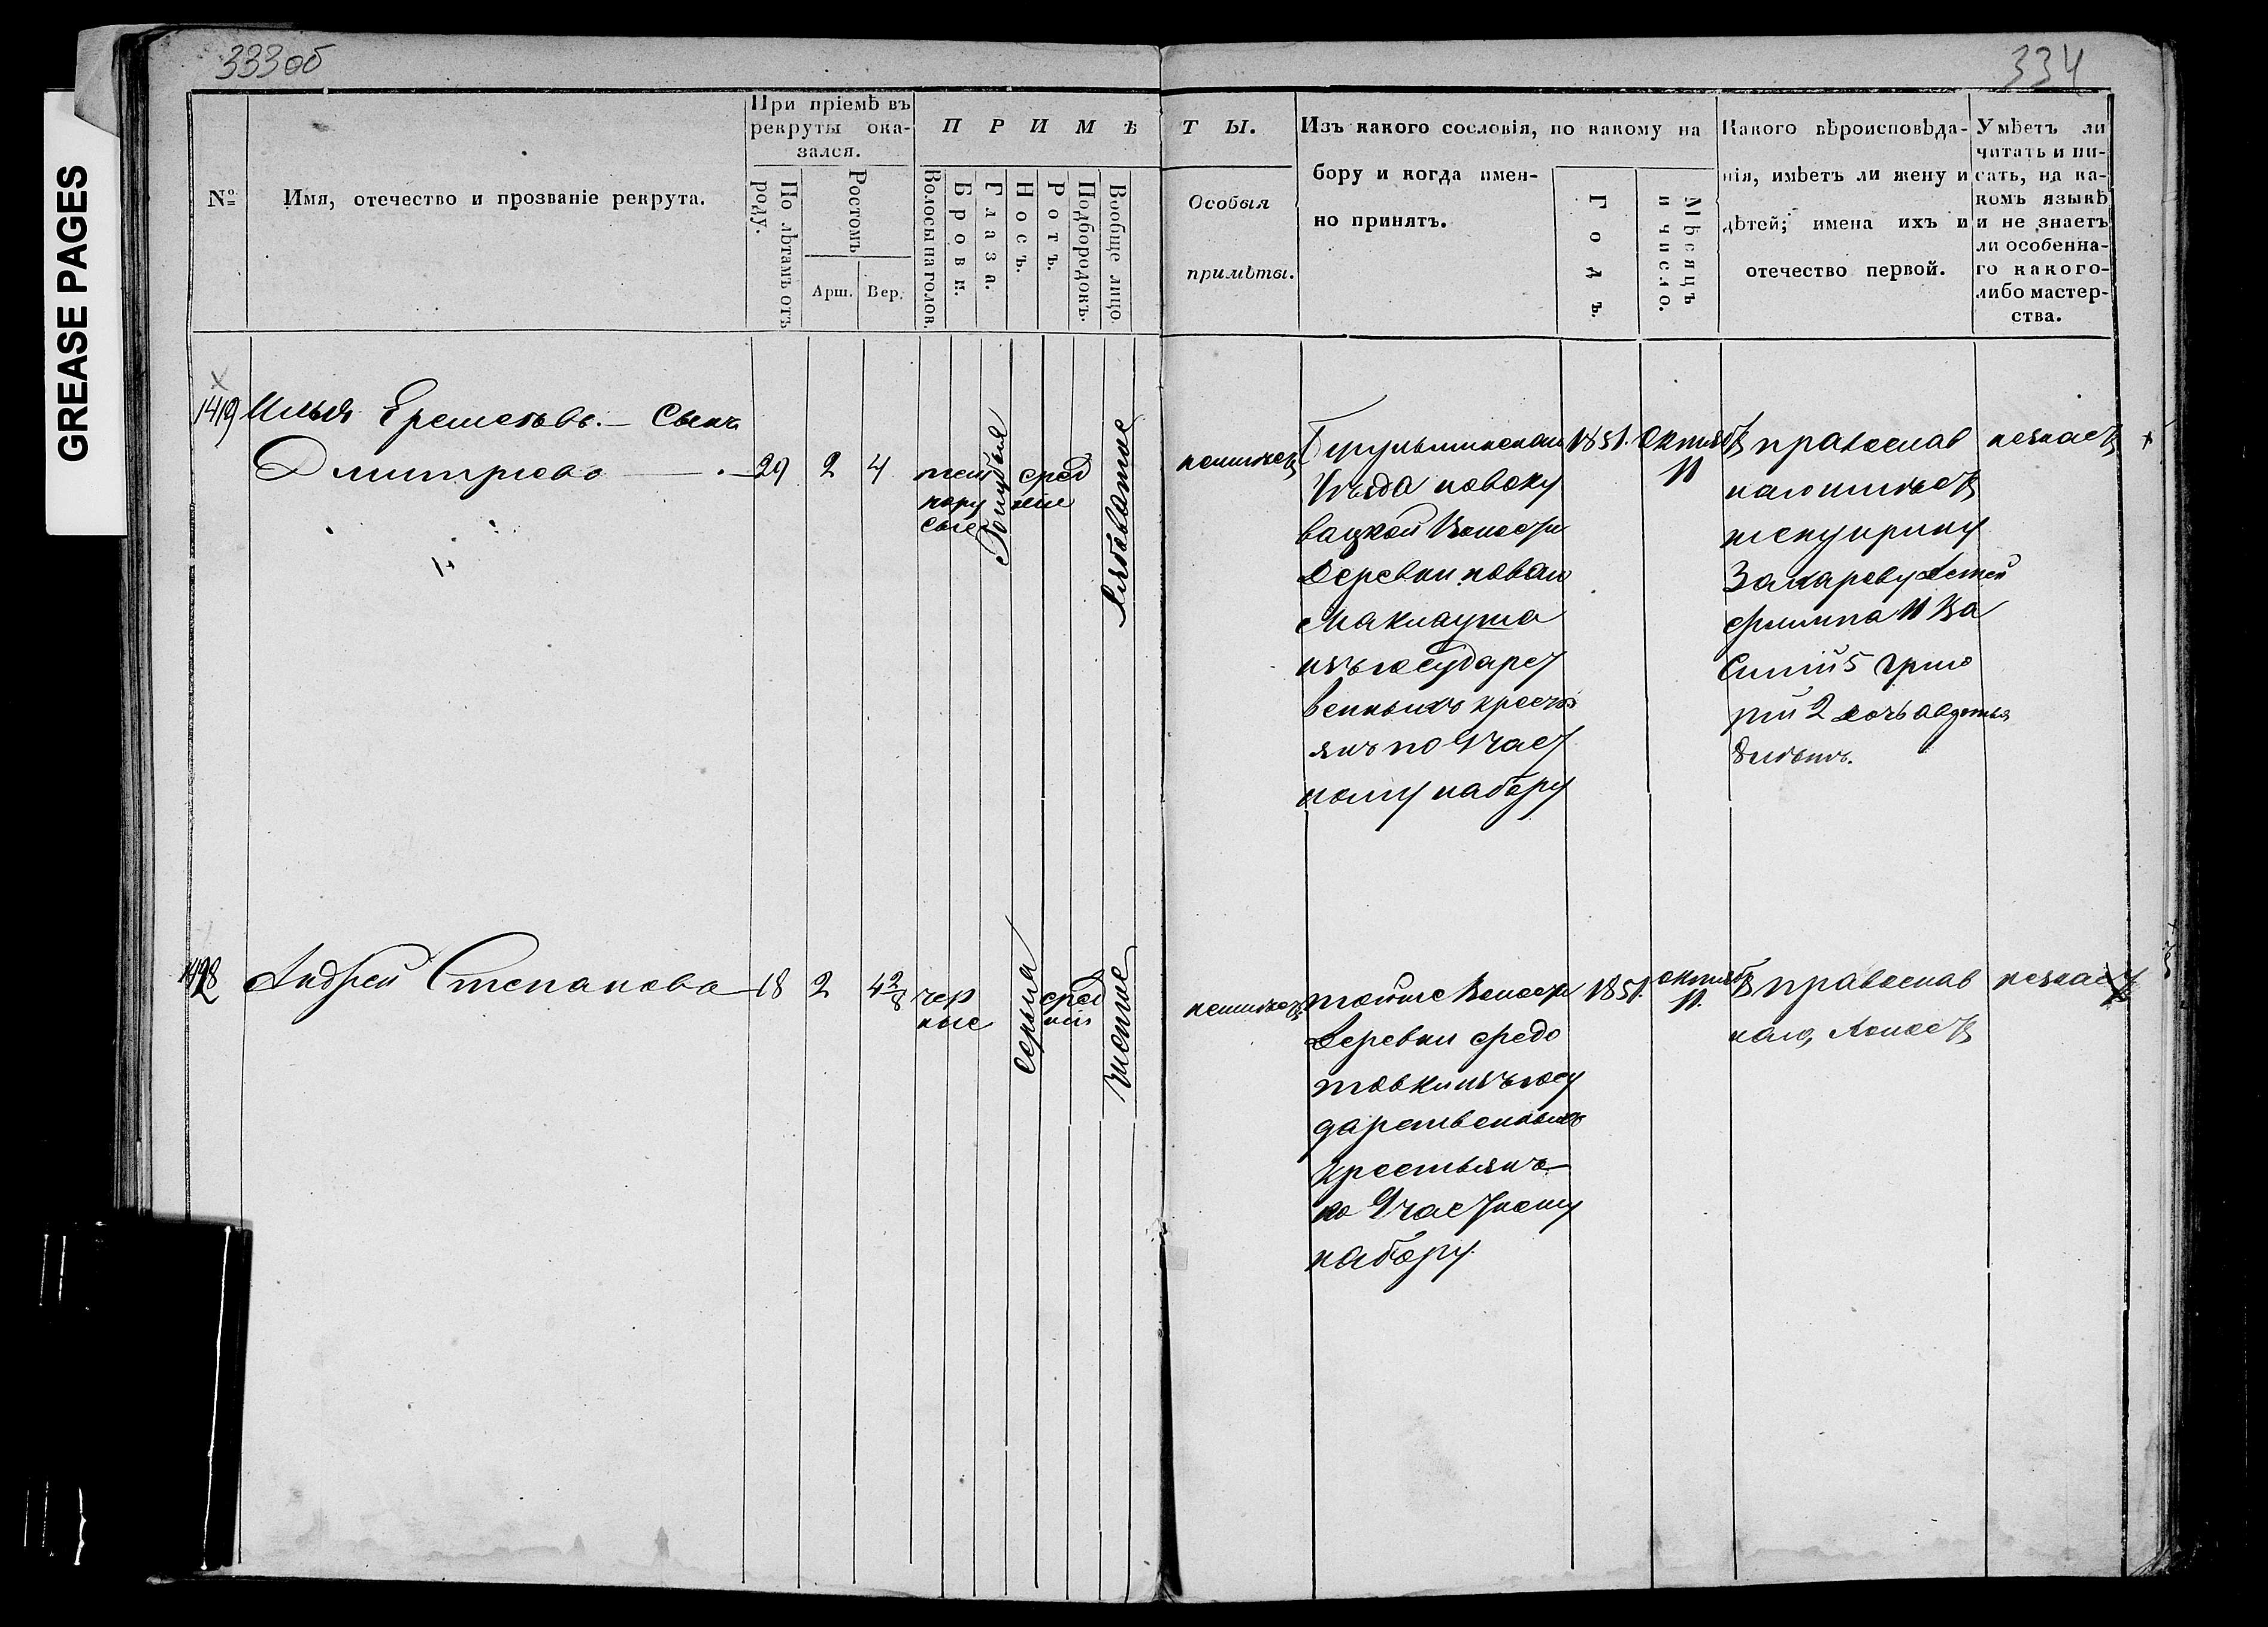 333об
334
GREASE PAGES
№
Имя, отечество и прозваніе рекрута.
При пріемѣ въ
рекруты ока-
зался.
По лѣтамъ отъ
роду.
Ростомъ
Арш.
Вер.
ПРИМѢТЫ.
Волосы на голов.
Брови.
Глаза.
Носъ.
Ротъ.
Подбородокъ.
Вообще лицо.
Особыя
примѣты.
Изъ какого сословія, по какому на
бору и когда имен-
но принятъ.
Годъ.
Мѣсяцъ
и число.
Какого вѣроисповѣда-
нія, имѣетъ ли жену и
дѣтей; имена ихъ и
отечество первой.
Умѣетъ ли
читать и пи-
сать, на ка-
комъ языкѣ
и не знаетъ
ли особенна-
го какого-
либо мастер-
ства.
1419
Илья Еремеевъ. — Сынъ
Дмитрево
29
2
4
тем
нору
сые
Голубые
сред
ніе
Рябоватое
неимѣет
Бугульминскаго
Уезда новоку
вацкой Волости
Деревни новаго
Маклауша
изъ государст
венныхъ кресть
янъ по 9 част
ному набору
1851.
Октяб
11
православ
наго имѣет
жену ирину
Захареву детей
филипа И Ва
Силій 5 григо
рій 2 дочь авдотья
незнает
Андрей Степанова
18
2
4 2/8
чер
ные
серыя
сред
ній
чистое
неимѣет
тойже Волости
Деревни федо
товки изъ госу
дарственныхъ
крестьянъ
по 9 частному
набору
1851.
октяб
11.
православ
наго, холост
незнает